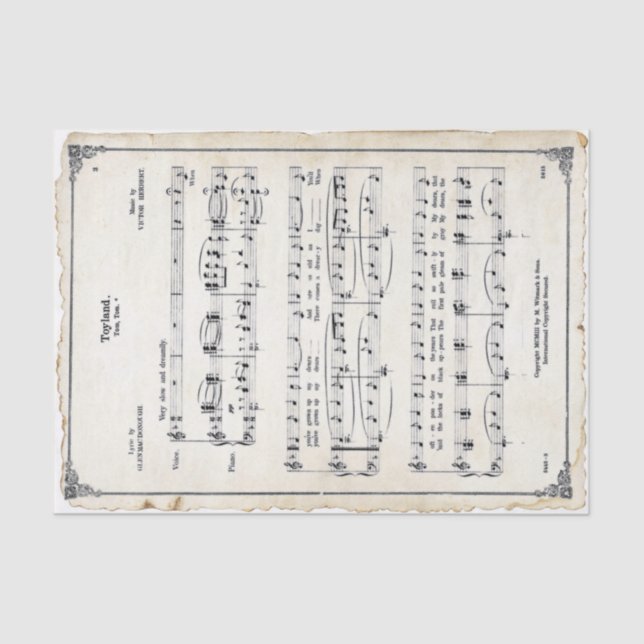 2
Toyland.
Tom, Tom. *
Lyric by
GLEN MACDONOUGH.
Music by
VICTOR HERBERT.
Very slow and dreamily.
Voice.
When
Piano.
pp
you've grown up my dears And are as old as I You'll
you've grown up my dears There comes a dreary day When
oft-en pon-der on the years That roll so swift-ly by My dears, that
'mid the locks of black ap-pears The first pale gleam of gray My dears, the
Copyright MCMIII by M. Witmark & Sons.
International Copyright Secured.